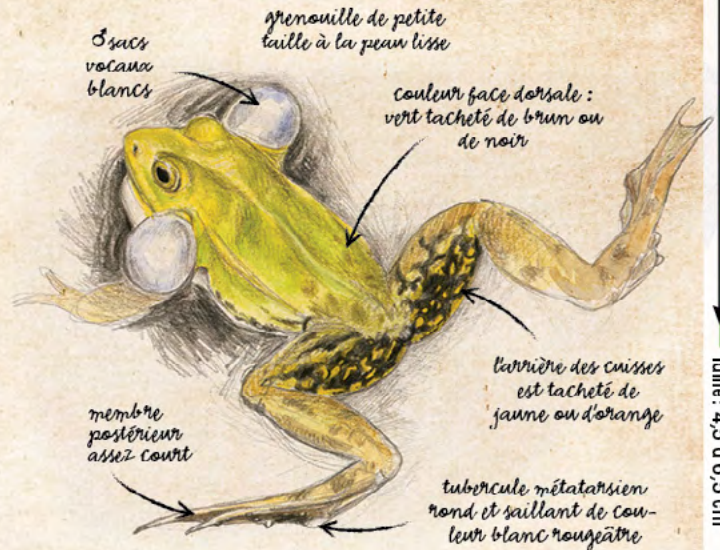 grenouille de petite
taille à la peau lisse
♂ sacs
vocaux
blancs
couleur face dorsale :
vert tacheté de brun ou
de noir
l'arrière des cuisses
est tacheté de
jaune ou d'orange
membre
postérieur
assez court
tubercule métatarsien
rond et saillant de cou-
leur blanc rougeâtre
Taille : 4,5 à 6,5 cm